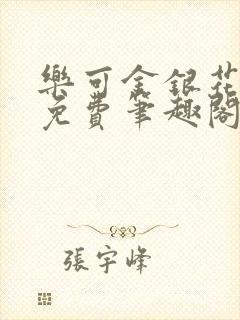 樂可金銀花
免費筆趣閣
張宇峰